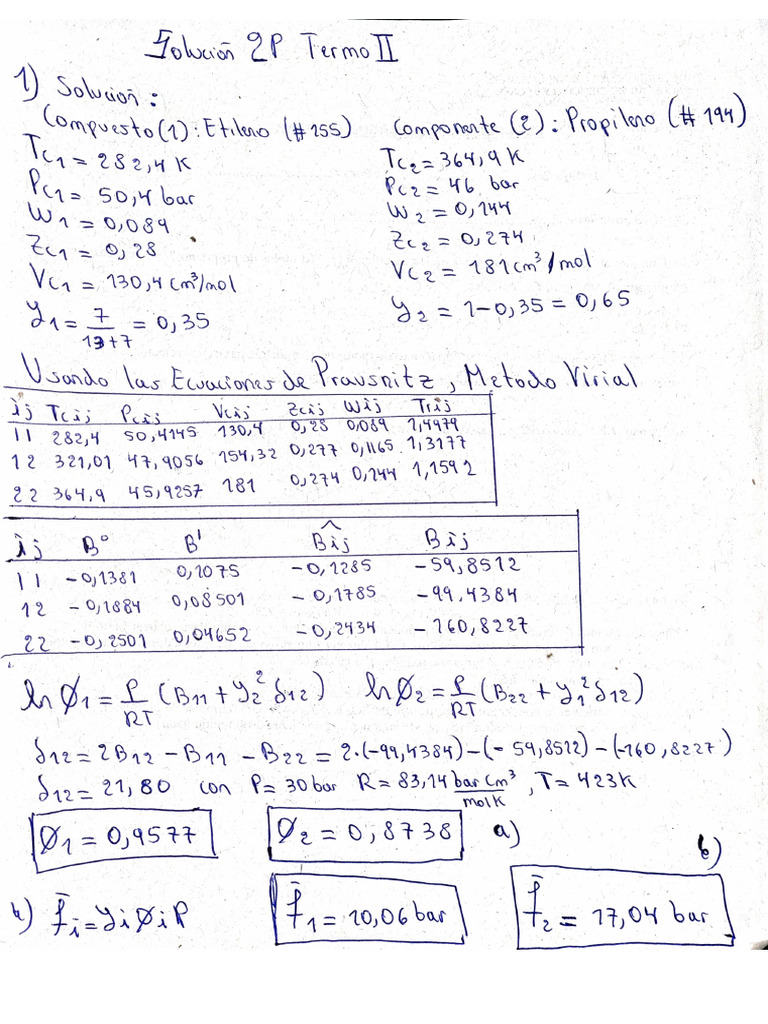 Solución 2P Termo II
1) Solución:
Compuesto (1): Etileno (#155) Componente (2): Propileno (#194)
Tc1 = 282,4 K Tc2 = 364,9 K
Pc1 = 50,4 bar Pc2 = 46 bar
W1 = 0,089 W2 = 0,144
Zc1 = 0,28 Zc2 = 0,274
Vc1 = 130,4 cm³/mol Vc2 = 181 cm³/mol
y1 = 7/(13+7) = 0,35 y2 = 1-0,35 = 0,65
Usando las Ecuaciones de Prausnitz, Metodo Virial
ij Tcij Pcij Vcij Zcij Wij Trij
11 282,4 50,4145 130,4 0,28 0,089 1,4979
12 321,01 47,9056 154,32 0,277 0,1165 1,3177
22 364,9 45,9257 181 0,274 0,144 1,1592
ij B° B' B̂ij Bij
11 -0,1381 0,1075 -0,1285 -59,8512
12 -0,1884 0,08501 -0,1785 -99,4384
22 -0,2501 0,04652 -0,2434 -160,8227
ln Ø1 = P/RT (B11 + y2² δ12) ln Ø2 = P/RT (B22 + y1² δ12)
δ12 = 2B12 - B11 - B22 = 2·(-99,4384) - (-59,8512) - (-160,8227)
δ12 = 21,80 con P = 30 bar R = 83,14 bar cm³/mol K, T = 423 K
Ø1 = 0,9577 Ø2 = 0,8738 a)
b)
b) f̄i = yi Øi P f̄1 = 10,06 bar f̄2 = 17,04 bar